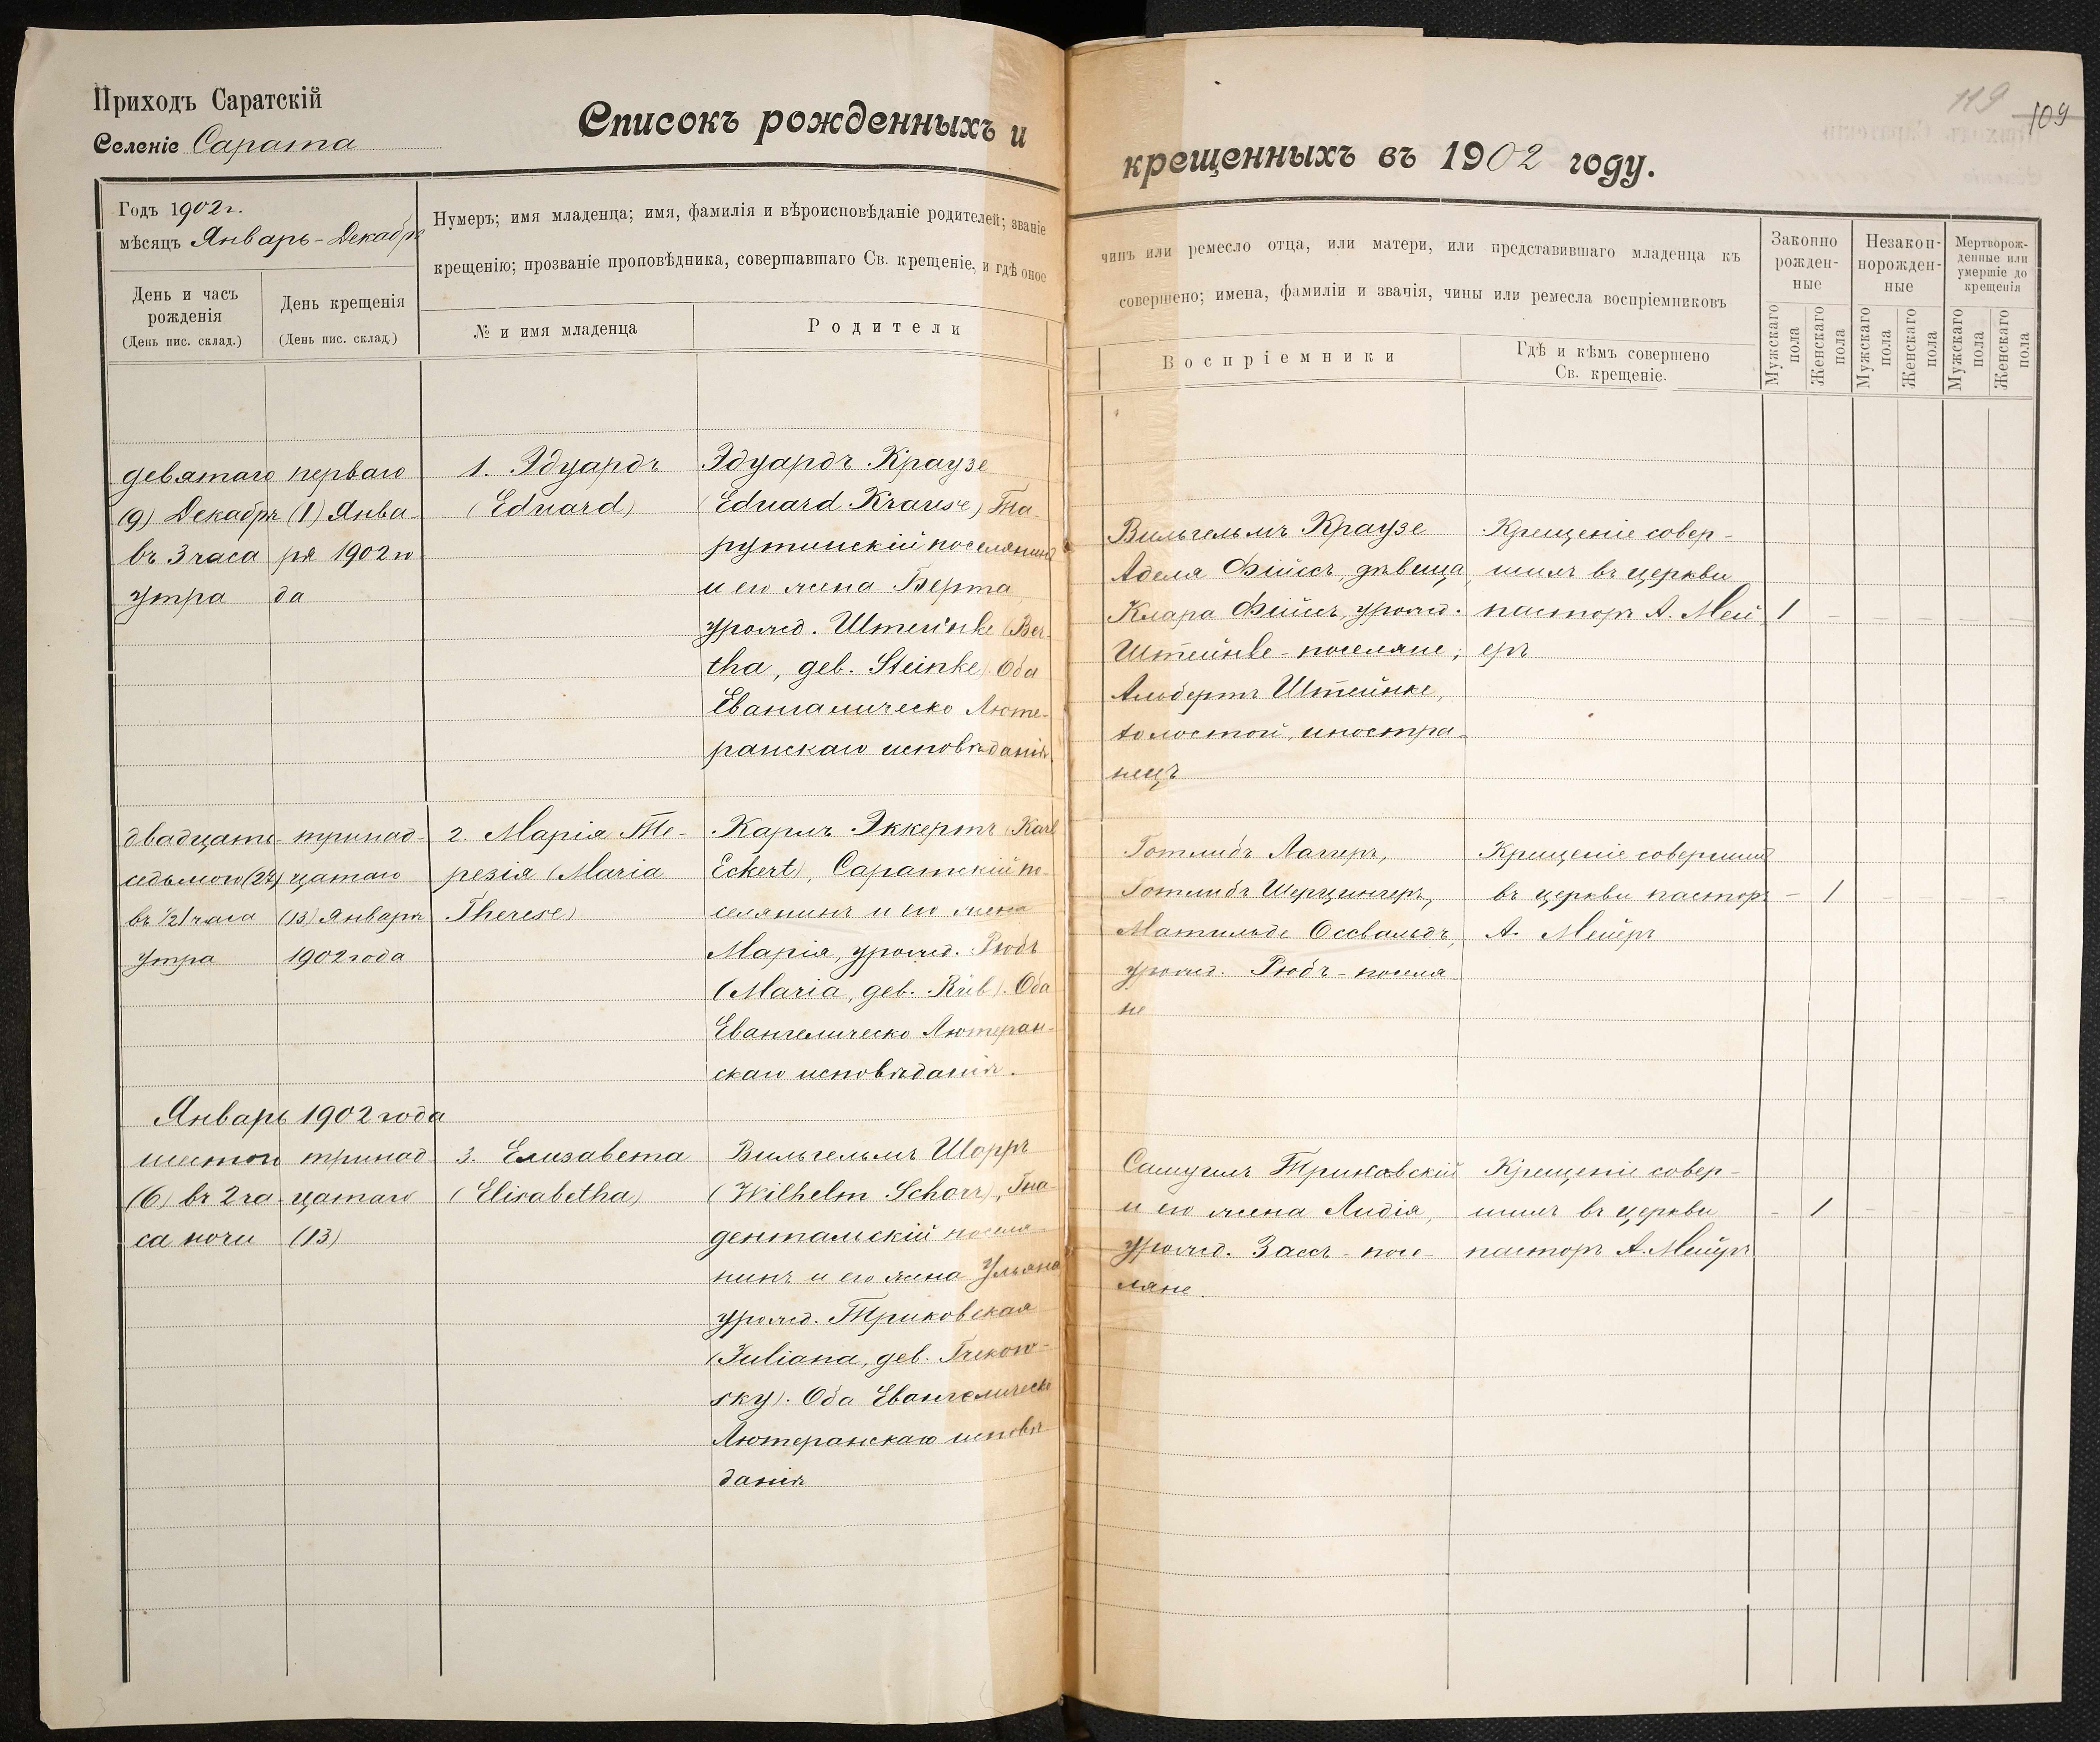 Приходъ Саратскій
Селеніе Сарата
Списокъ рожденныхъ и
крещенныхъ въ 1902 году.
119
109
Годъ 1902 г.
мѣсяцъ Январь-Декабрь
День и часъ
рожденія
(День пис. склад.)
День крещенія
(День пис. склад.)
Нумеръ; имя младенца; имя, фамилія и вѣроисповѣданіе родителей; званіе
крещенію; прозваніе проповѣдника, совершавшаго Св. крещеніе, и гдѣ оное
№ и имя младенца
Родители
чинъ или ремесло отца, или матери, или представившаго младенца къ
совершено; имена, фамиліи и званія, чины или ремесла воспріемниковъ
Воспріемники
Гдѣ и кѣмъ совершено
Св. крещеніе.
Законно
рожден-
ные
Незакон-
норожден-
ные
Мертворож-
денные или
умершіе до
крещенія
Мужскаго
пола
Женскаго
пола
Мужскаго
пола
Женскаго
пола
Мужскаго
пола
Женскаго
пола
девятаго
(9) Декабря
въ 3 часа
утра
перваго
(1) Янва-
ря 1902 го
да
1. Эдуардъ
(Eduard)
Эдуардъ Краузе
(Eduard Krause) Та-
рутинскій поселянинъ
и его жена Берта
урожд. Штейнке (Ber-
tha, geb. Steinke). Оба
Евангелическо Люте-
ранскаго исповѣданія.
Вильгельмъ Краузе
Аделя Фйиссъ, дѣвица
Клара Фйиссъ, урожд.
Штейнке - поселяне;
Альбертъ Штейнке,
холостой, иностра-
нецъ
Крещеніе совер-
шилъ въ церкви
пасторъ А. Мей
еръ
1 - - - - -
двадцать
седьмого (27)
въ 1/2 1 часа
утра
тринад-
цатаго
(13) Января
1902 года
2. Марія Те-
резія (Maria
Therese)
Карлъ Эккертъ (Karl
Eckert), Саратскій по-
селянинъ и его жена
Марія, урожд. Рюбъ
(Maria, geb. Rüb). Оба
Евангелическо Лютеран-
скаго исповѣданія.
Готлибъ Лаггеръ,
Готлибъ Шерцингеръ,
Матильде Оссвальдъ,
урожд. Рюбъ - поселя
не
Крещеніе совершилъ
въ церкви пасторъ
А. Мейеръ
- 1 - - - -
Январь 1902 года
шестого
(6) въ 2 ча-
са ночи
тринад-
цатаго
(13)
3. Елизавета
(Elisabetha)
Вильгельмъ Шорръ
(Wilhelm Schorr), Гна-
дентальскій поселя-
нинъ и его жена Ульяна
урожд. Триковская
(Juliana, geb. Trekow-
sky). Оба Евангелическо
Лютеранскаго исповѣ-
данія
Самуилъ Триковскій
и его жена Лидія,
урожд. Зассъ - посе-
ляне.
Крещеніе совер-
шилъ въ церкви
пасторъ А. Мейеръ
- 1 - - - -